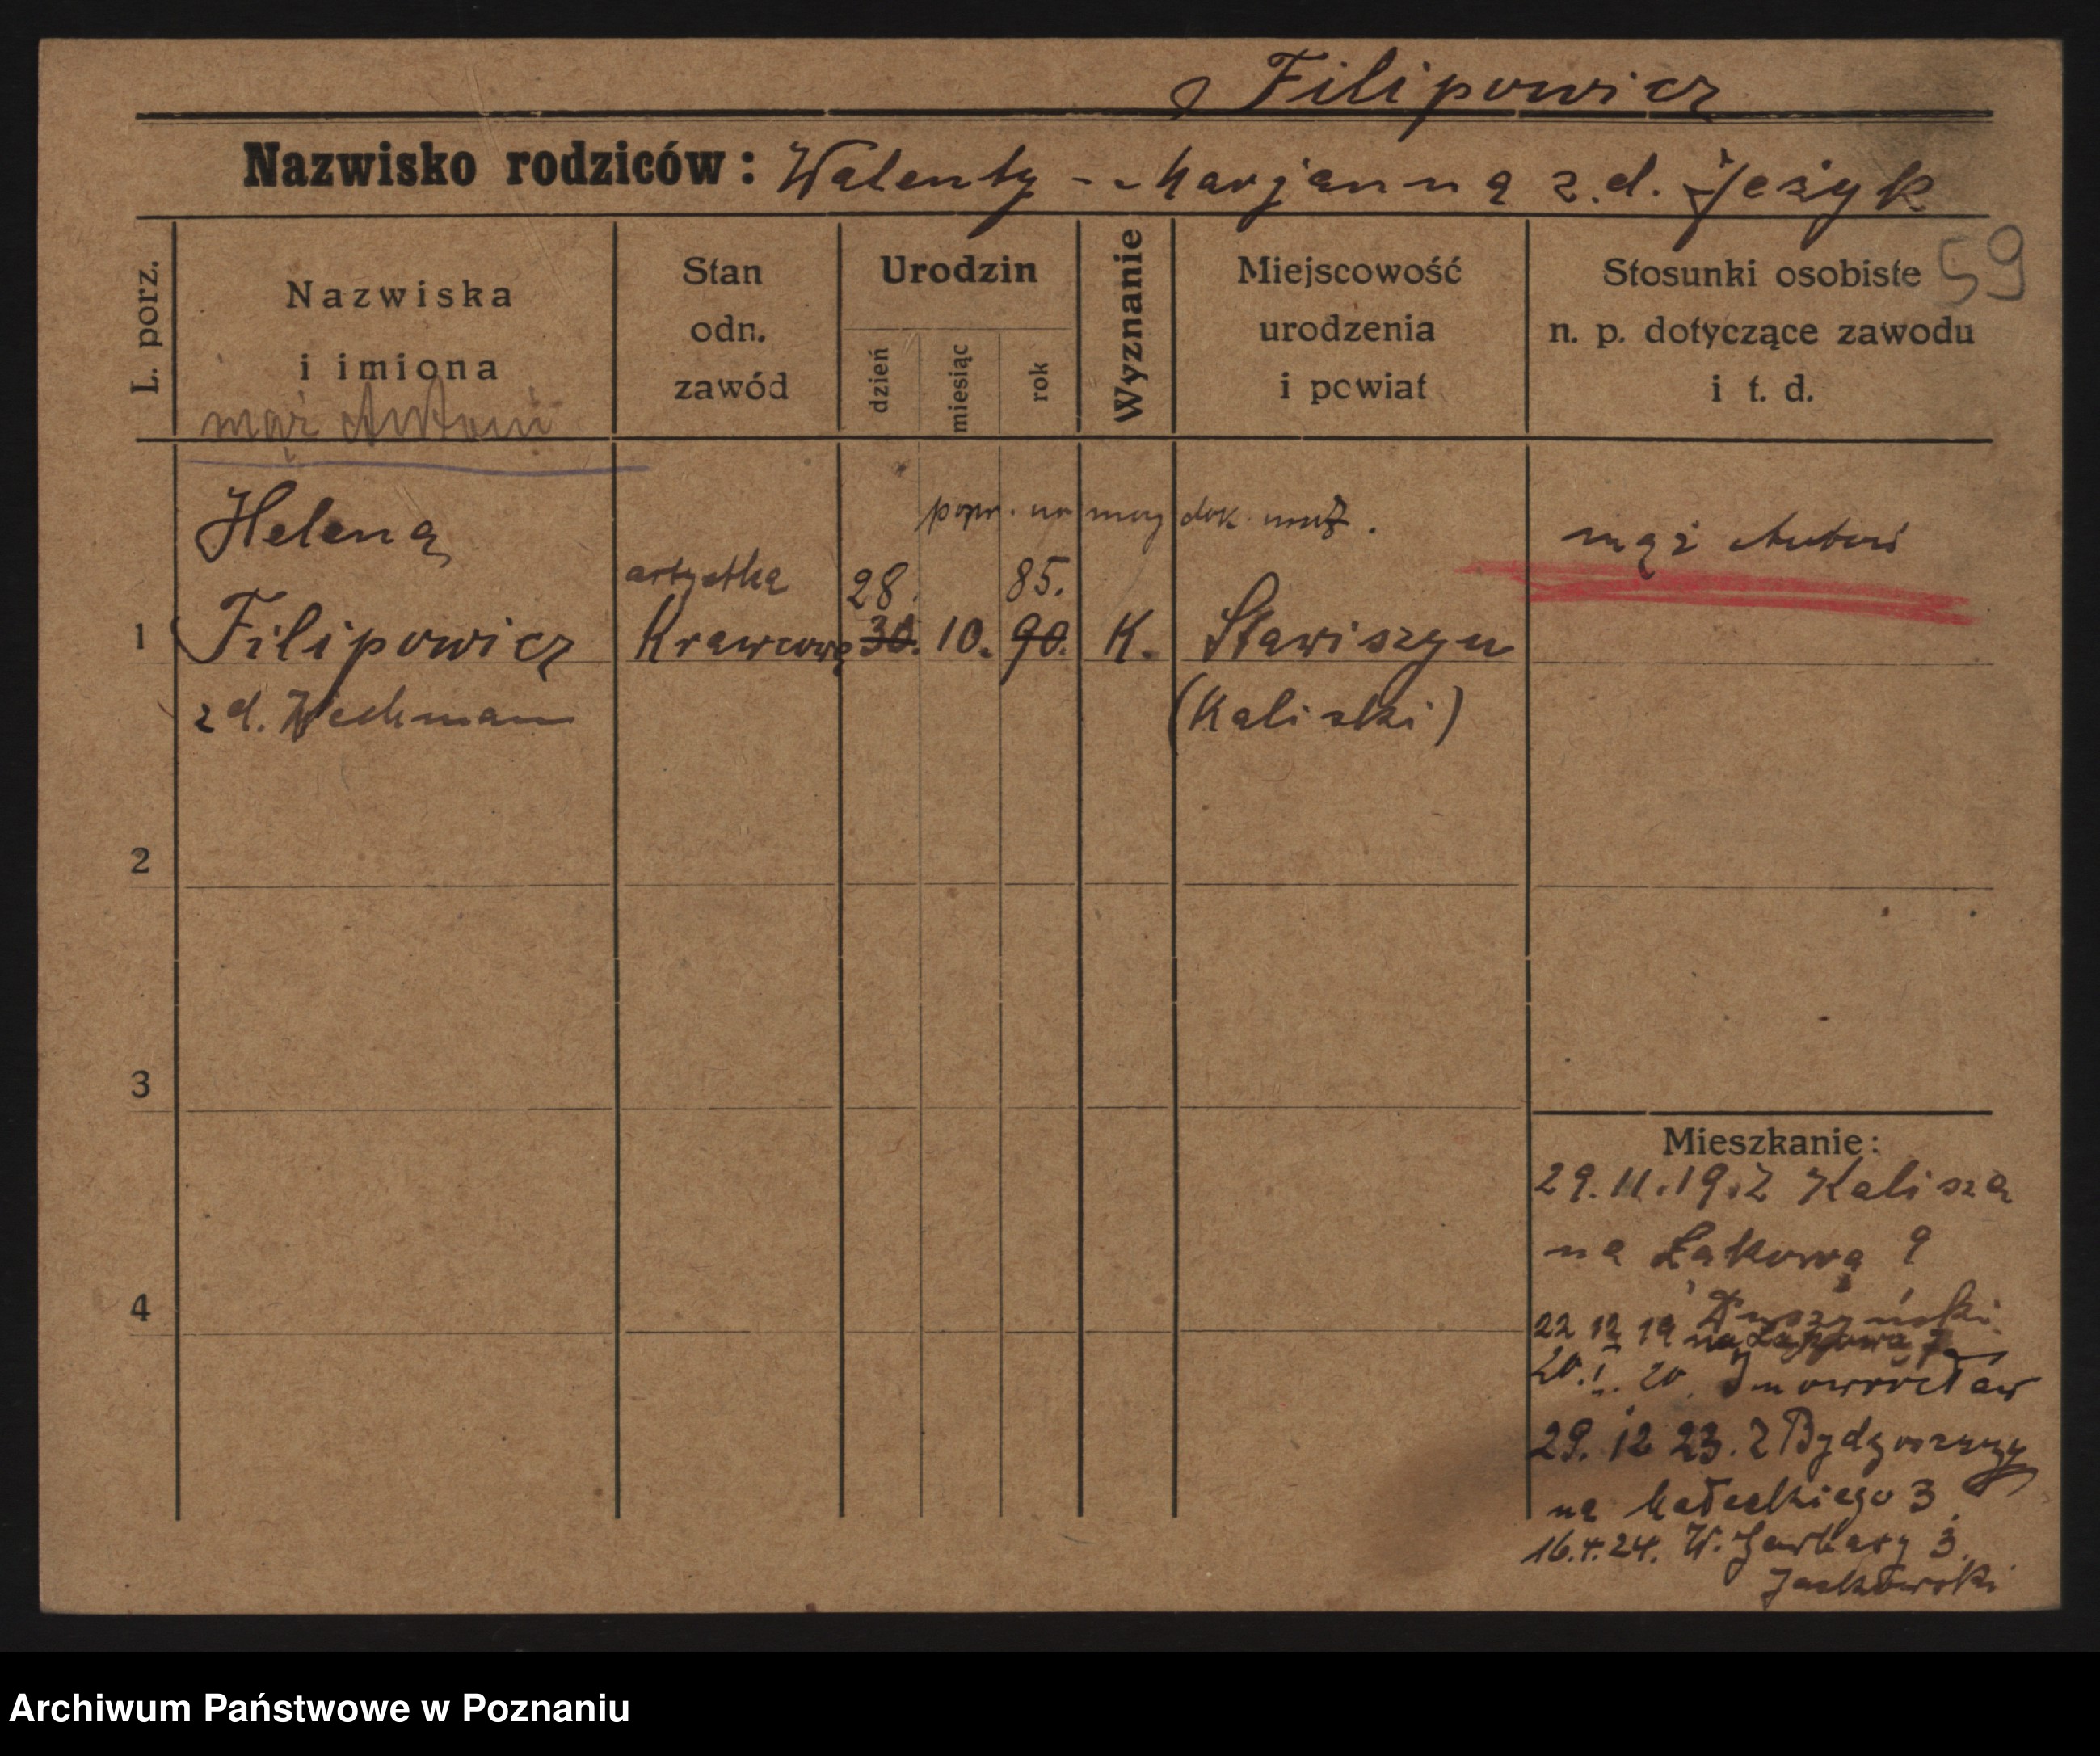 Filipowicz
Nazwisko rodziców: Walenty - Marjanna z.d. Jeżyk
59
L. porz.
Nazwiska
i imiona
mąż Antoni
Stan
odn.
zawód
Urodzin
dzień
miesiąc
rok
Wyznanie
Miejscowość
urodzenia
i powiat
Stosunki osobiste
n. p. dotyczące zawodu
i t. d.
popr. na dok.
Helena
mąż Antoni
artystka
28. 85.
1 Filipowicz Krawcowa 30. 10. 90. K. Stawiszyn
z d. Wechman (Kaliski)
2
3
4
Mieszkanie:
29.11.19. Z Kalisza
na Łąkową 9
22 12 19 na Łąkową
20.I.20. Inowrocław
29.12 23. Z Bydgoszczy
na Małeckiego 3
16.4.24. W. Garbary 3.
Jackowski
Archiwum Państwowe w Poznaniu